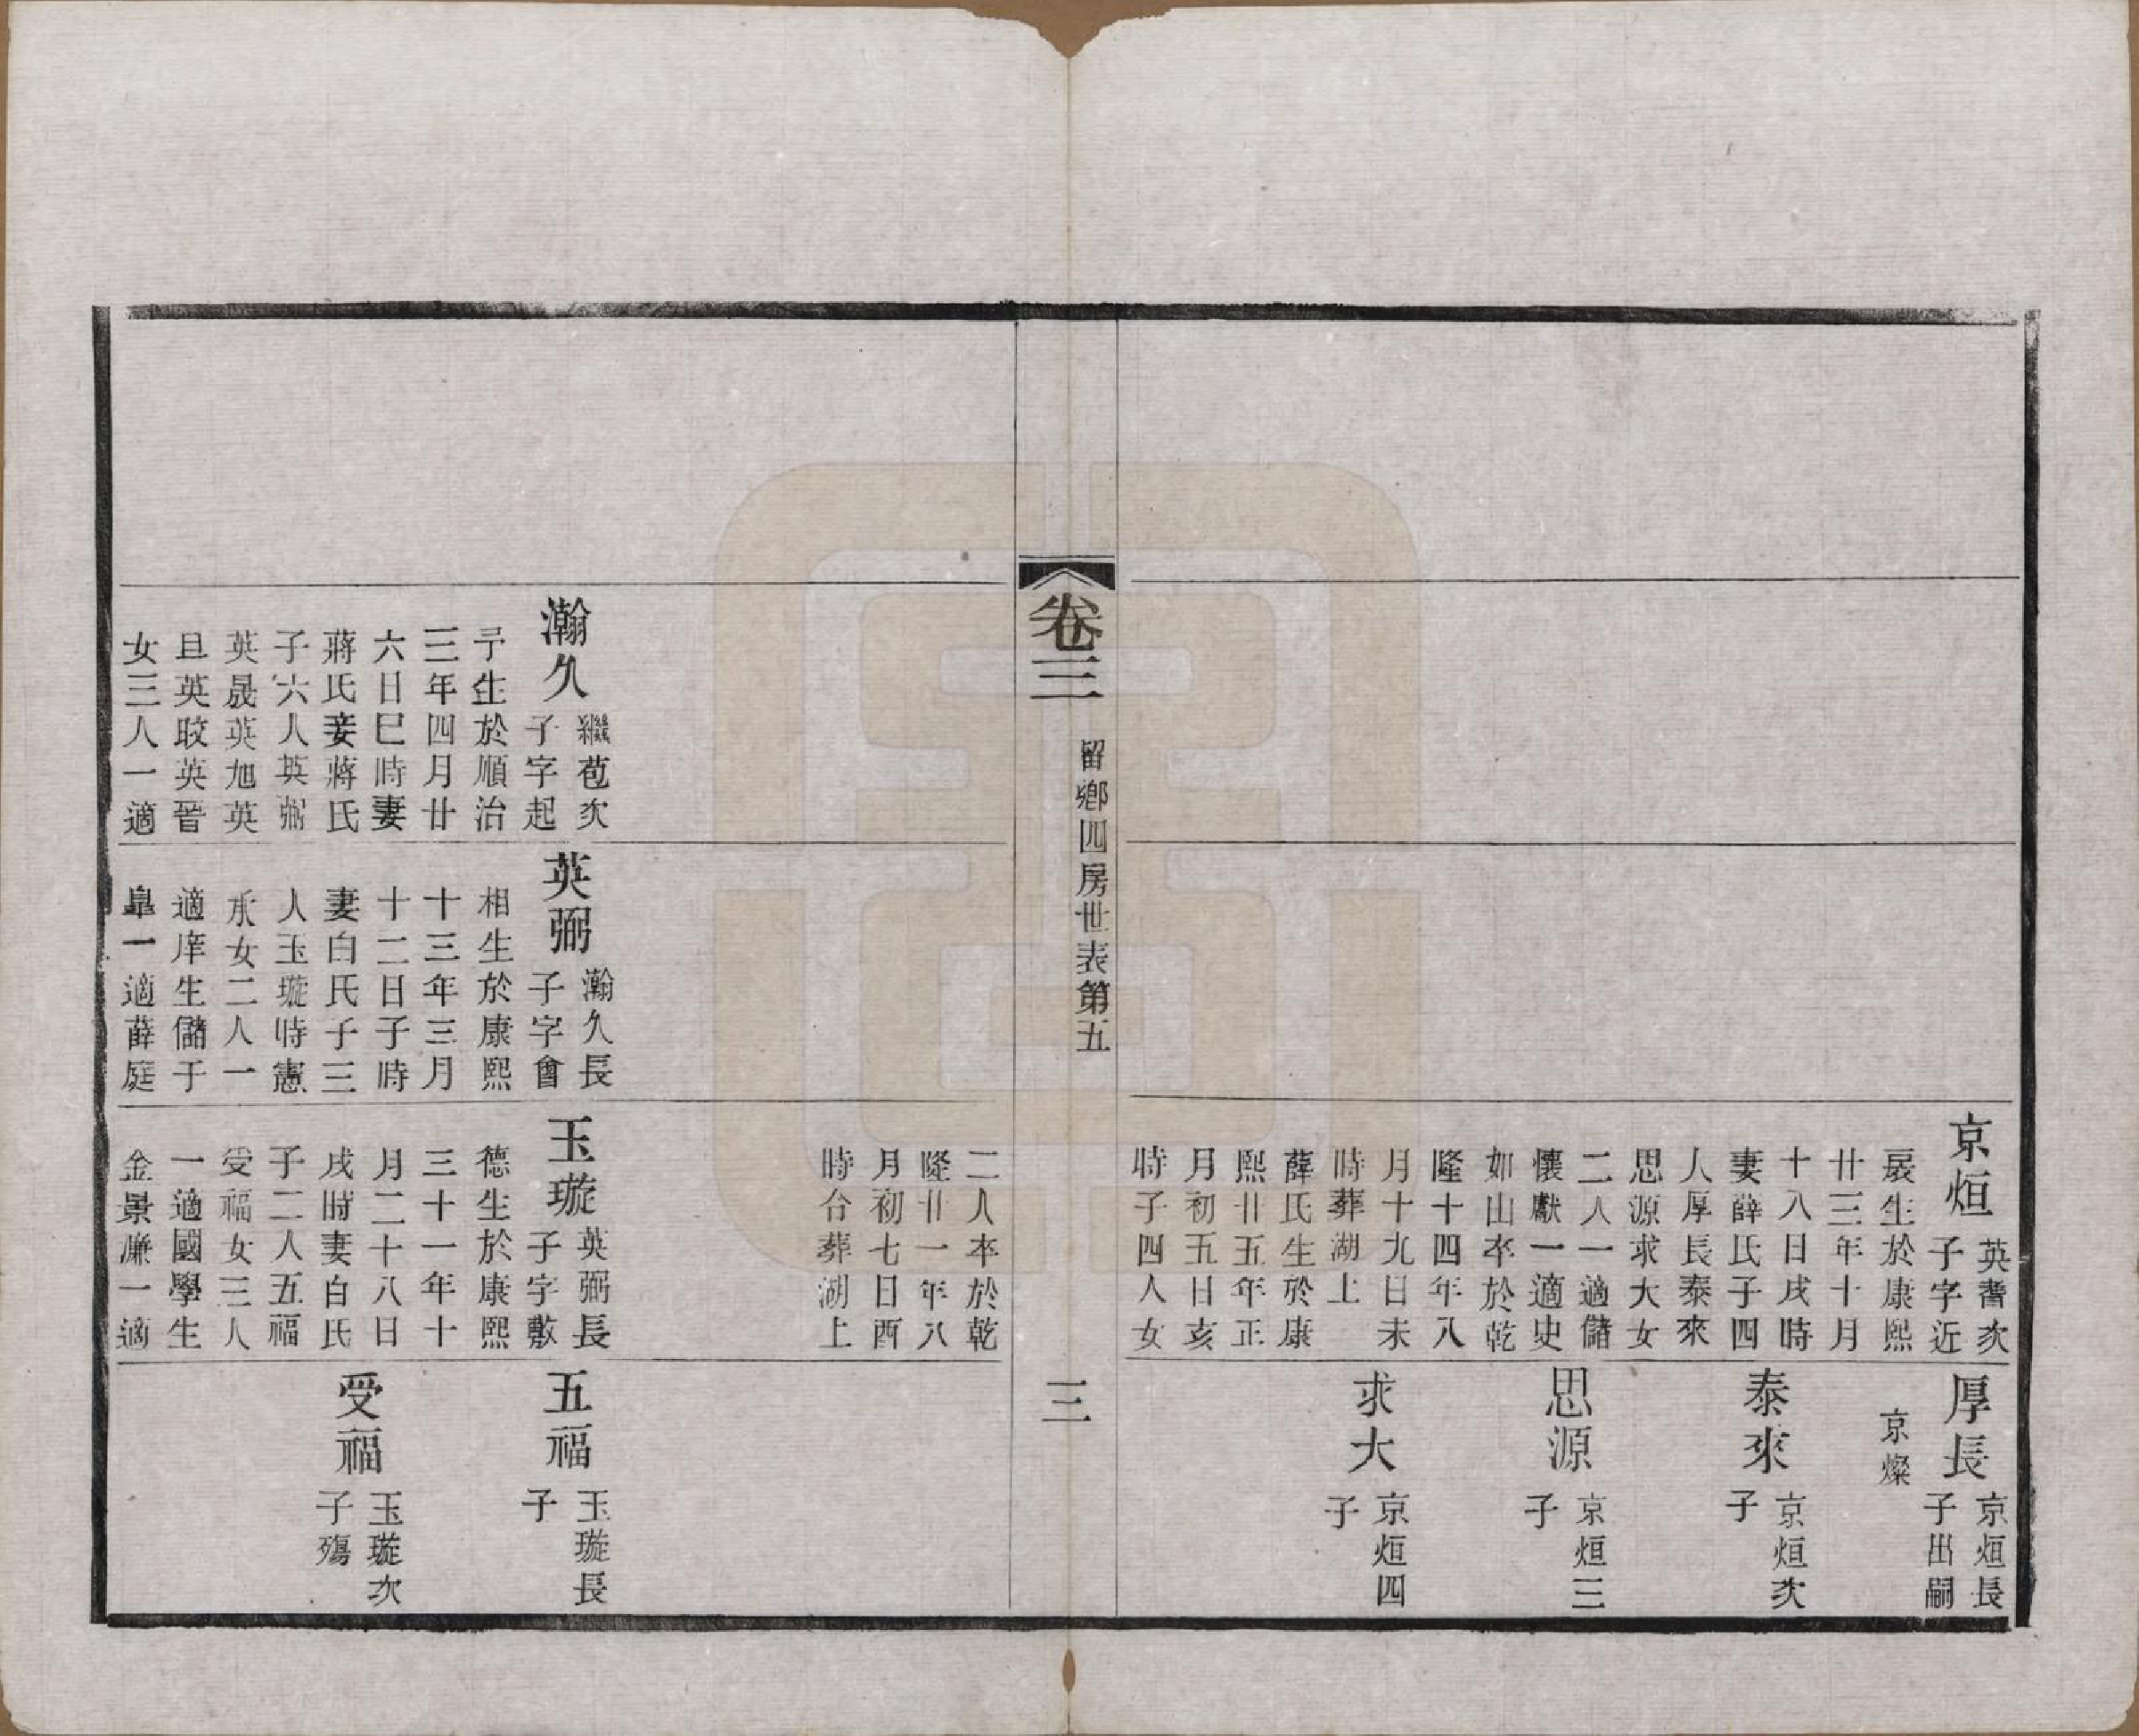 京烜
英耆次
子字近
宸生於康熙
廿三年十月
十八日戌時
妻薛氏子四
人厚長泰來
思源求大女
二人一適儲
懷獻一適史
如山卒於乾
隆十四年八
月十九日未
時葬湖上
薛氏生於康
熙廿五年正
月初五日亥
時子四人女
厚長
京烜長
子出嗣
京燦
泰來
京烜次
子
思源
京烜三
子
求大
京烜四
子
卷三
留鄉四房世表第五
三
二人卒於乾
隆廿一年八
月初七日酉
時合葬湖上
瀚久
繼苞次
子字起
予生於順治
三年四月廿
六日巳時妻
蔣氏妾蔣氏
子六人英弼
英晟英旭英
旦英旼英晉
女三人一適
英弼
瀚久長
子字會
相生於康熙
十三年三月
十二日子時
妻白氏子三
人玉璇時憲
承女二人一
適庠生儲于
臯一適薛庭
玉璇
英弼長
子字敷
德生於康熙
三十一年十
月二十八日
戌時妻白氏
子二人五福
受福女三人
一適國學生
金景廉一適
五福
玉璇長
子
受福
玉璇次
子殤